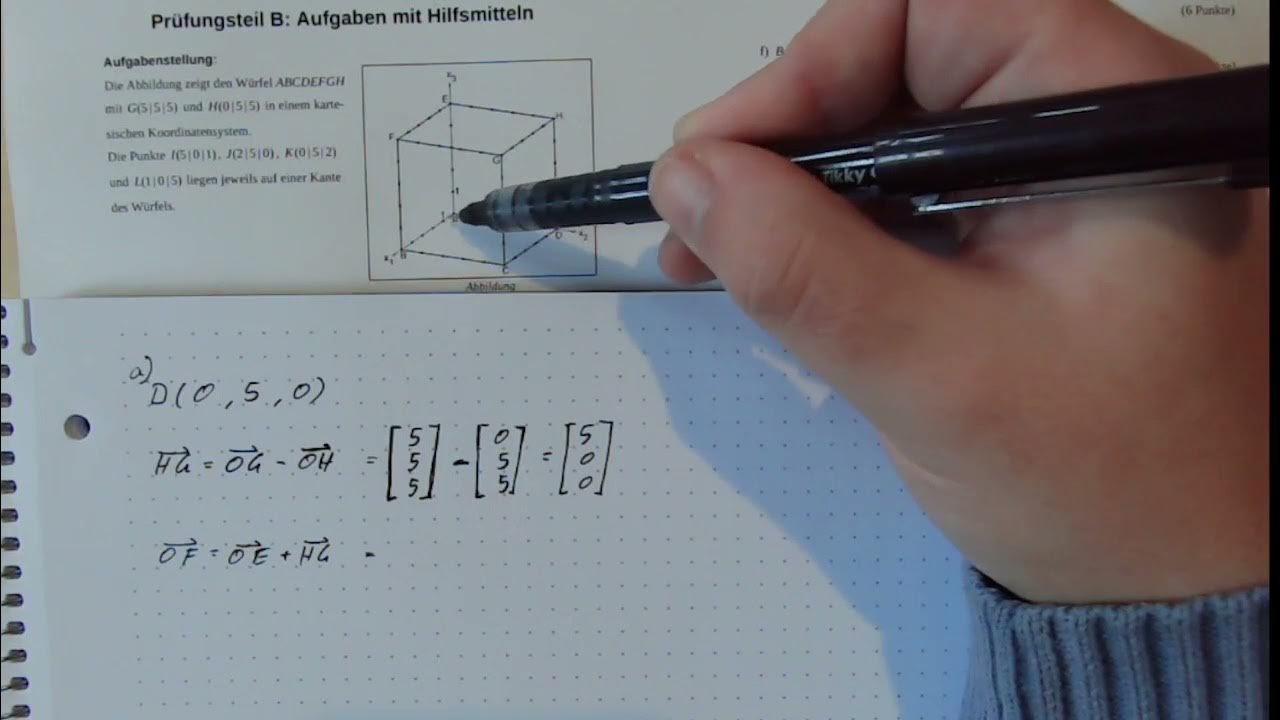 Prüfungsteil B: Aufgaben mit Hilfsmitteln
(6 Punkte)
Aufgabenstellung:
Die Abbildung zeigt den Würfel ABCDEFGH
mit G(5|5|5) und H(0|5|5) in einem karte-
sischen Koordinatensystem.
Die Punkte I(5|0|1), J(2|5|0), K(0|5|2)
und L(1|0|5) liegen jeweils auf einer Kante
des Würfels.
f) B
x₃
E
H
F
G
1
1
D
x₂
x₁
B
C
Abbildung
a)
D(0,5,0)
HG→ = OG→ - OH→ = [5 5 5] - [0 5 5] = [5 0 0]
OF→ = OE→ + HG→ =